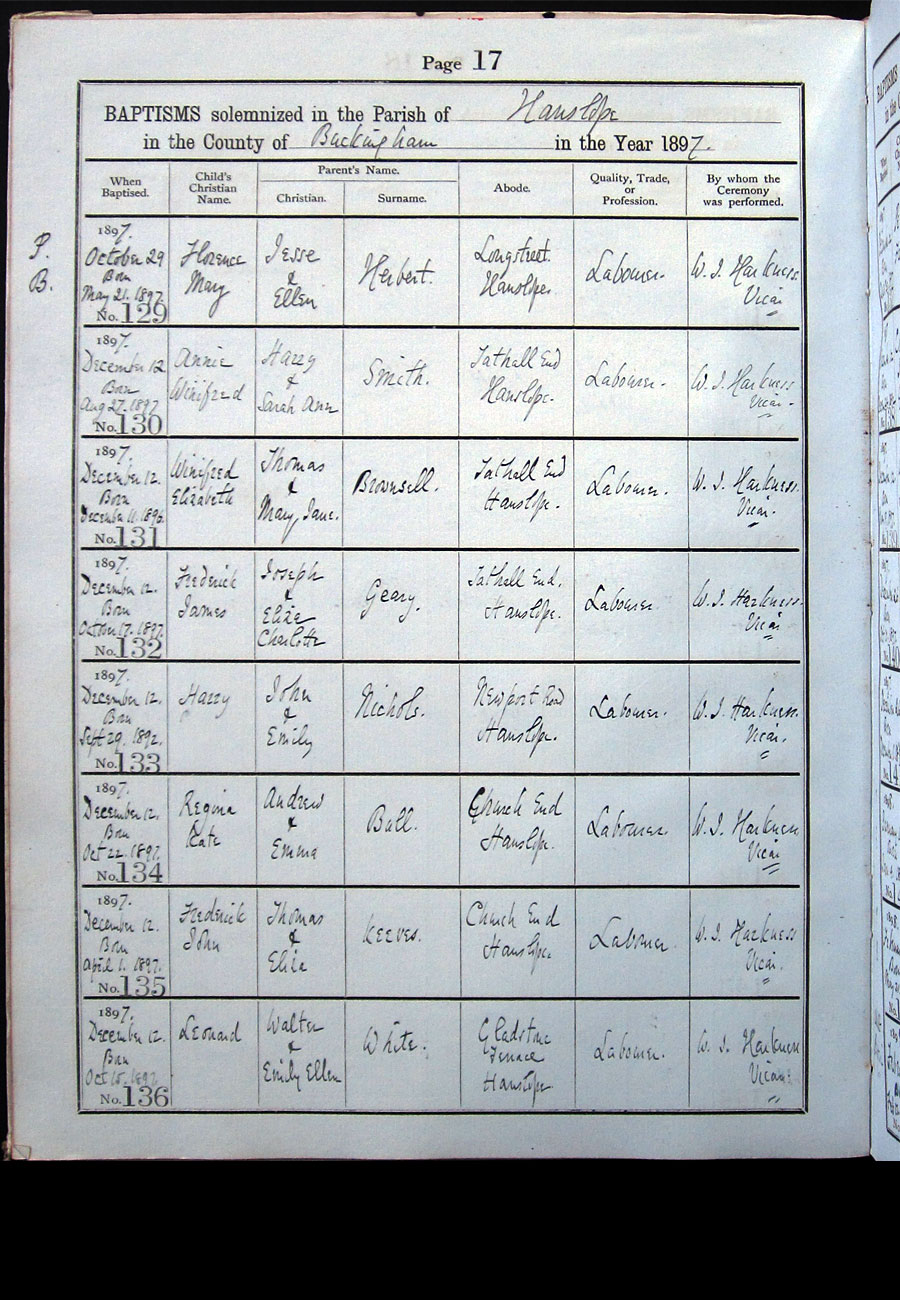 Page 17
BAPTISMS solemnized in the Parish of Hanslope
in the County of Buckingham in the Year 1897.
When Baptised.
Child's Christian Name.
Parent's Name.
Christian.
Surname.
Abode.
Quality, Trade, or Profession.
By whom the Ceremony was performed.
P.
B.
1897.
October 29
Born
May 21. 1897
No. 129
Florence
Mary
Jesse
&
Ellen
Herbert.
Longstreet.
Hanslope.
Labourer.
W. J. Harkness.
Vicar
1897.
December 12
Born
Aug 27. 1897
No. 130
Annie
Winifred
Harry
&
Sarah Ann
Smith.
Tathall End
Hanslope.
Labourer.
W. J. Harkness
Vicar.
1897.
December 12.
Born
December 11. 1896.
No. 131
Winifred
Elizabeth
Thomas
&
Mary Jane.
Brownsell.
Tathall End
Hanslope.
Labourer.
W. J. Harkness.
Vicar.
1897.
December 12.
Born
October 17. 1897.
No. 132
Frederick
James
Joseph
&
Eliza
Charlotte
Geary.
Tathall End.
Hanslope.
Labourer
W. J. Harkness.
Vicar
1897.
December 12.
Born
Sept 29. 1892.
No. 133
Harry
John
&
Emily
Nichols.
Newport Road
Hanslope.
Labourer.
W. J. Harkness.
Vicar.
1897.
December 12.
Born
Oct 22. 1897.
No. 134
Regina
Kate
Andrew
&
Emma
Ball.
Church End
Hanslope.
Labourer.
W. J. Harkness
Vicar
1897.
December 12.
Born
April 1. 1897.
No. 135
Frederick
John
Thomas
&
Eliza
Keeves.
Church End
Hanslope.
Labourer.
W. J. Harkness
Vicar.
1897.
December 12.
Born
Oct 15. 1897.
No. 136
Leonard
Walter
&
Emily Ellen
White.
Gladstone
Terrace
Hanslope
Labourer.
W. J. Harkness
Vicar.